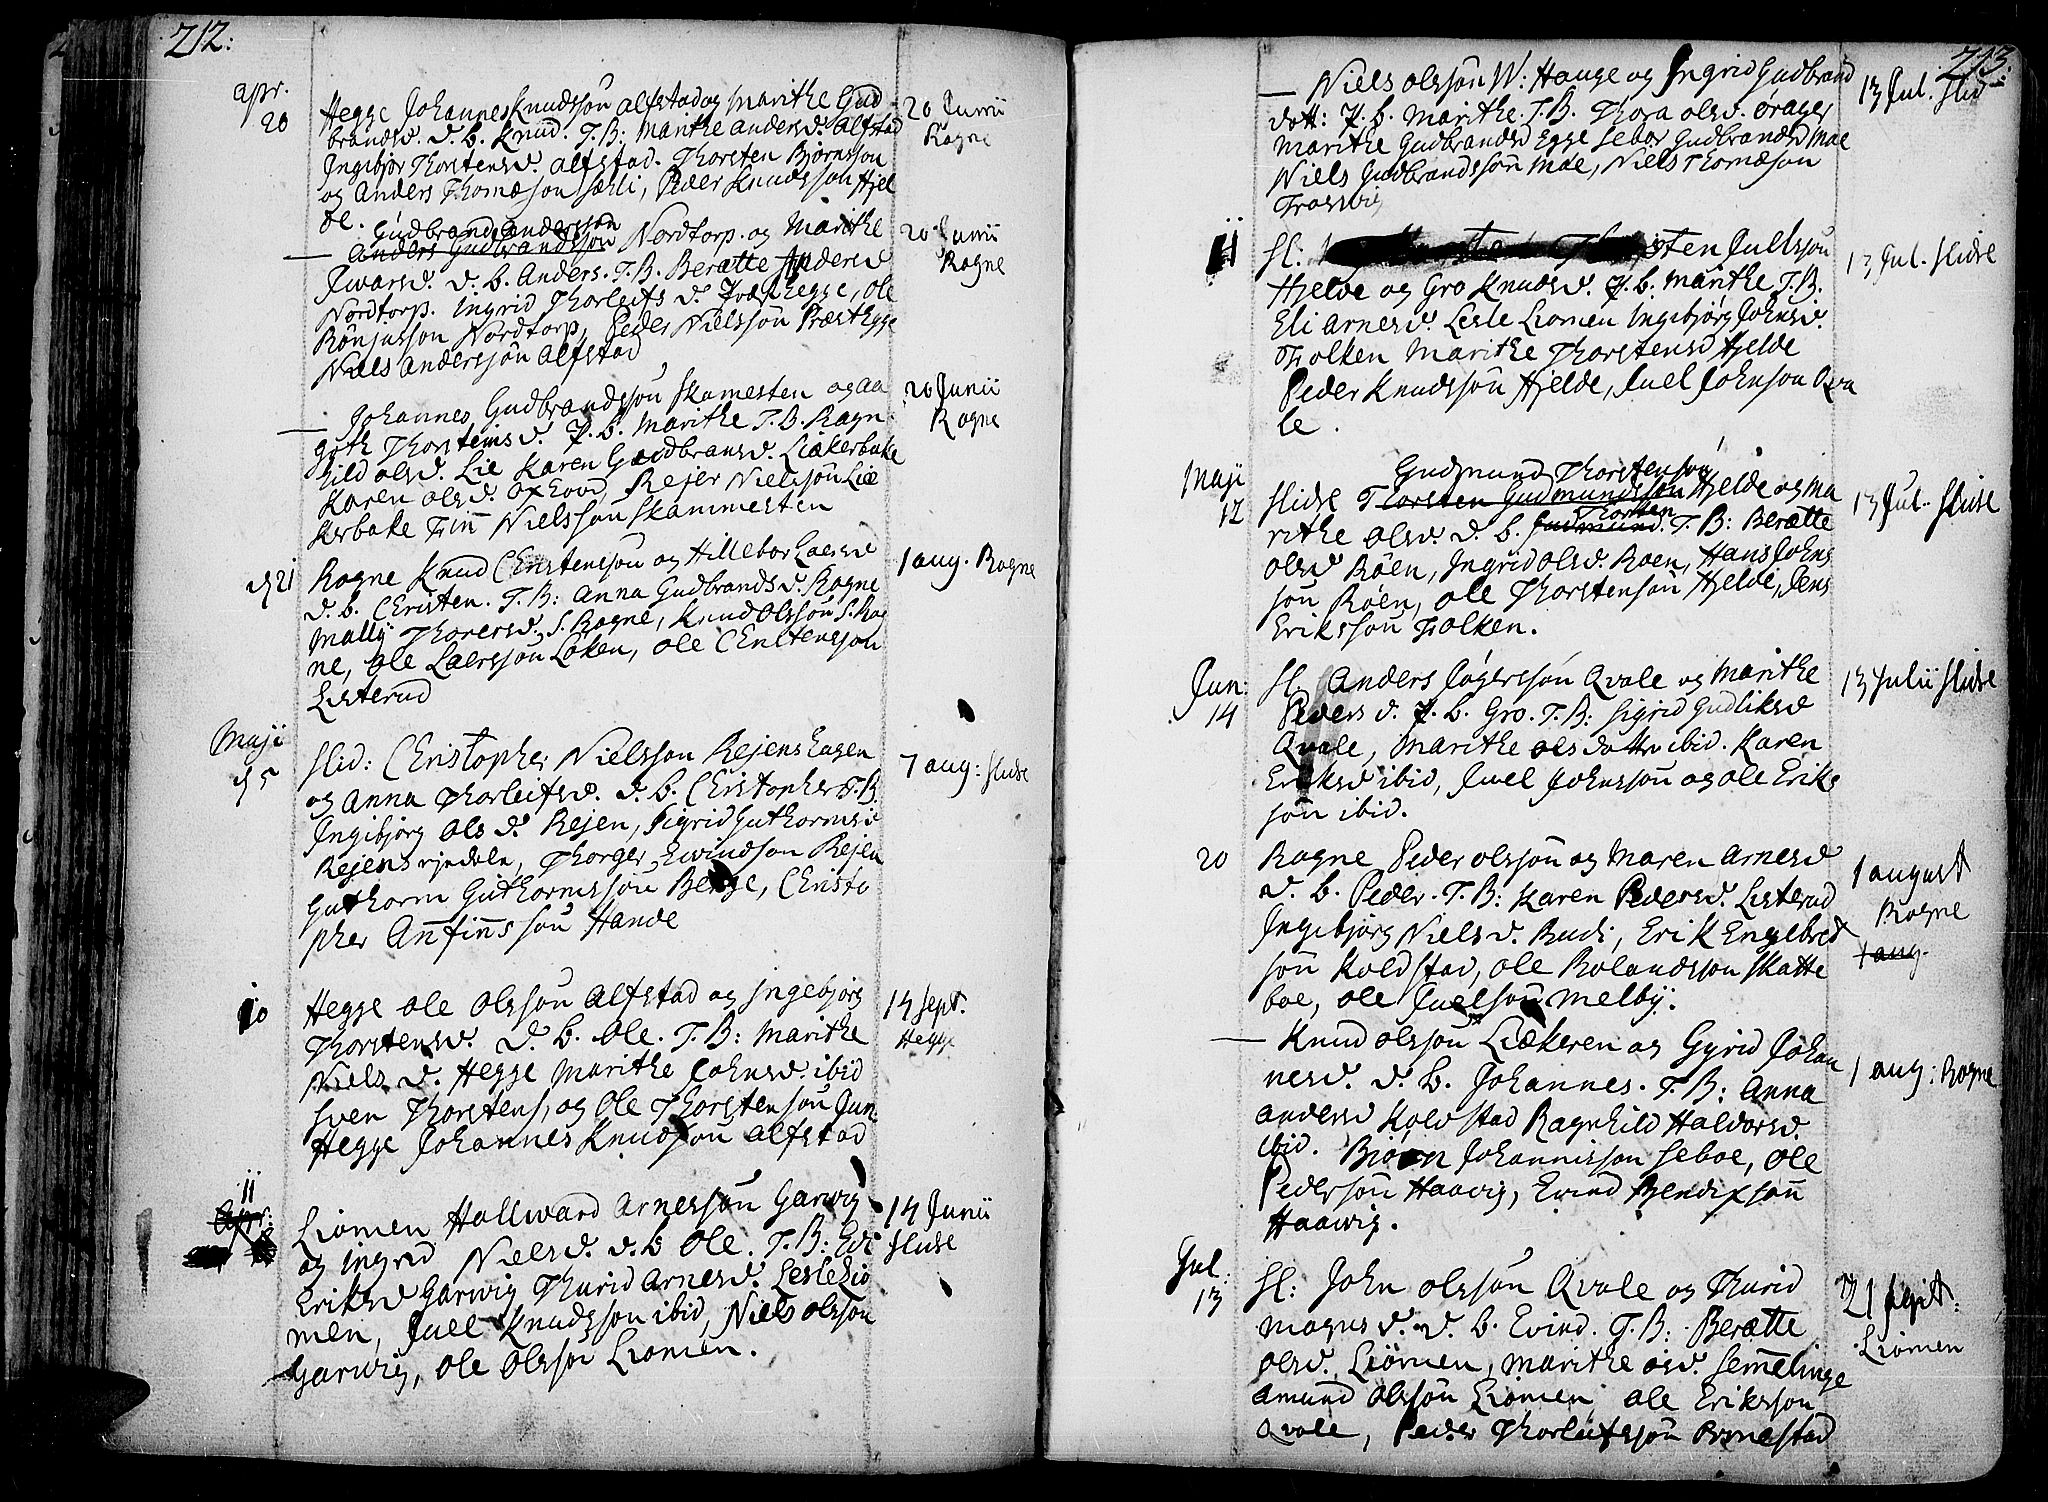 212:
apr.
20
Hegge Johannes Knudssøn Alfstad og Marithe Gud
brandsd. d. b. Knud. T. B: Marithe Andersd. Alfstad
Ingebjør Thorstensd. Alfstad. Thorsten Bjørnssøn
og Anders Thomæsøn Sæhli, Peder Knudssøn Hjel
de.
20 Junii
Rogne
Gudbrand Anderssøn
— Anders Gudbrandssøn Nordtorp og Marithe
Iwarsd. d. b. Anders. T. B. Berætte Andersd
Nordtorp. Ingrid Thorleifs d. Præsthegge, Ole
Rønjussøn Nordtorp, Peder Nielssøn Præsthegge
Niels Anderssøn Alfstad
20 Junii
Rogne
— Johannes Gudbrandssøn Skamesten og Aa
goth Thorstensd. P. b. Marithe T. B. Ragn
hild olsd. Lie Karen Gudbransd. Liækerbake
Karen olsd. Oxhovd, Rejer Nielssøn Liæ
kerbake Finn Nielssøn Skammesten
20 Junii
Rogne
d 21
Rogne Knud Christenssøn og Hillebor Laersd
d. b. Christen. T. B: Anna Gudbrandsd. Rogne
Mally Thoresd. S. Rogne, Knud Olssøn S. Rog
ne, Ole Laerssøn Løken, Ole Christenssøn
Listerud
1 aug. Rogne
Maji
d 5
Slid: Christopher Nielssøn Rejenshagen
og Anna Thorleifsd. d. b. Christopher T. B.
Ingibjørg Ols d. Rejen, Sigrid Guthormsd
Rejens , Thorger Ewindsøn Rejen
Guthorm Guthormssøn Berge, Christo
pher Anfinnssøn Hande
7 aug: Slidre
10
Hegge Ole Olssøn Alfstad og Ingebjørg
Thorstensd. d. b. Ole. T. B: Marithe
Niels d. Hegge Marithe Johnsd. ibid
Sven Thorstens, og Ole Thorstensøn Jun.
Hegge Johannes Knudsøn Alfstad
14 Sept.
Hegge
11
Apr.
Liomen Hallward Arnessøn Garwig
og Ingrid Nielsd. d. b Ole. T. B: Edi
Eriksd Garwig Thurid Arnesd. Lesle Lio
men, Juel Knudssøn ibid, Niels Olssøn
Garwig, Ole Olssøn Liomen.
14 Junii
Slidre
213.
— Niels Olssøn W: Hauge og Ingrid Gudbrand
dott: P. b. Marithe. T. B. Thora olsd. Ørager
Marithe Gudbrandsd Egge Sebor Gudbrandsd Moe
Niels Gudbrandssøn Moe, Niels Thomæsøn
Trosvig
13 Jul. Slid
11
Sl: Thorsten Jullssøn
Hjelde og Gro Knudsd. P. b. Marithe T. B.
Eli Arnesd. Lesle Liomen Ingibjørg Johnsd.
Folken Marithe Thorstensd Hjelde
Peder Knudssøn Hjelde, Juel Johnsøn Qva
le.
13 Jul. Slidre
Maji
12
Gudmund Thorstensøn
Slidre Thorsten Gudmundssøn Hjelde og Ma
Thorsten
rithe Olsd. d. b. Gudmund. T. B: Berætte
Olsd Røen, Ingrid Olsd. Roen, Hans Johns
søn Røen, Ole Thorstensøn Hjelde, Jens
Erikssøn Folken.
13 Jul. Slidre
Jun
14
Sl. Anders Jøgerssøn Qvale og Marithe
Peders d. P. b. Gro. T. B: Sigrid Gudliksd
Qvale, Marithe ols datter ibid. Karen
Eriksd ibid, Juel Johnssøn og Ole Eriks
søn ibid.
13 Julii Slidre
20
Rogne Peder Olssøn og Maren Arnesd
d. b. Peder. T. B: Karen Pedersd. Listerud
Ingibjørg Nielsd. Rudi, Erik Engelbret
søn Koldstad, Ole Rolandssøn Skatte
boe, Ole Juelsøn Melby.
1 august
Rogne
1 aug.
— Knud Olssøn Liækeren og Gyrid Johan
nesd. d. b. Johannes. T. B: Anna
Andersd Kolstad Ragnhild Haldorsd.
ibid. Bjøen Johannissøn Seboe, Ole
Pedersøn Haawig, Ewind Bendixsøn
Haawig.
1 aug: Rogne
Jul.
13
Sl: John Olssøn Qvale og Thurid
Magnsd. d. b. Evind. T. B: Berætte
Olsd. Liømen, Marithe Olsd. Semmelinge
Amund Olssøn Liomen, Ole Erikssøn
Qvale, Peder Thorleifssøn Ormestad
21 Sept:
Liomen